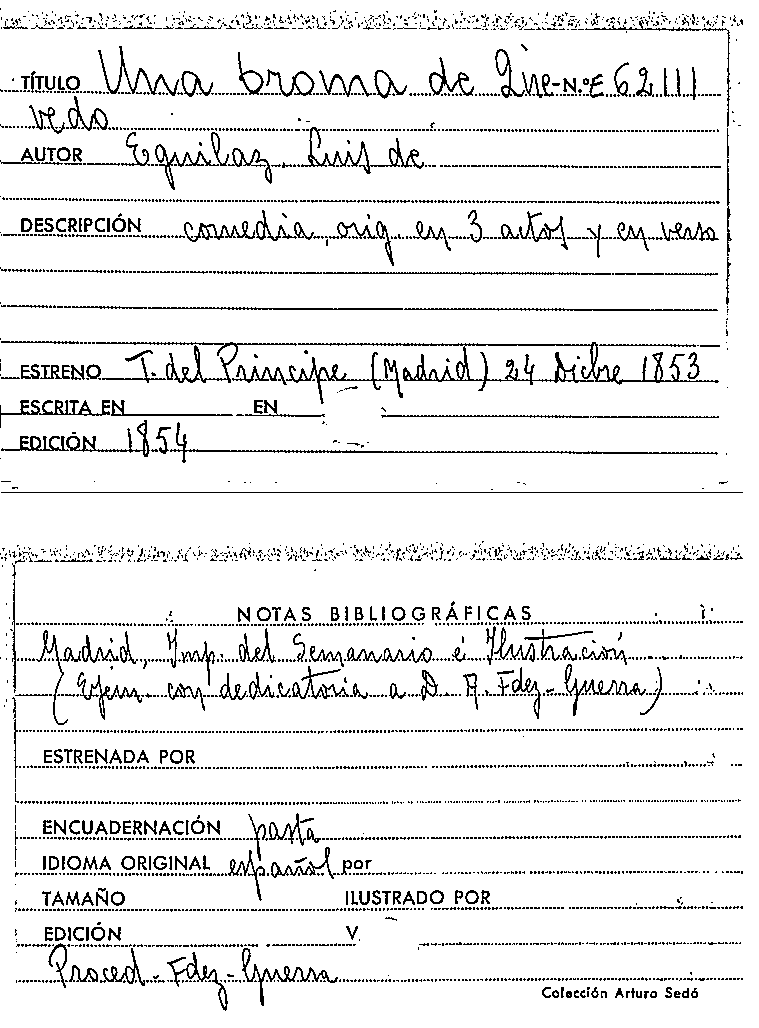 TÍTULO Una broma de Que- N.º E 62111
vedo
AUTOR Eguilaz, Luis de
DESCRIPCIÓN comedia, orig. en 3 actos y en verso
ESTRENO T. del Principe (Madrid) 24 Dicbre 1853
ESCRITA EN EN
EDICIÓN 1854
NOTAS BIBLIOGRÁFICAS
Madrid, Imp. del Semanario é Ilustración
(Ejem. con dedicatoria a D. A. Fdez-Guerra)
ESTRENADA POR
ENCUADERNACIÓN pasta
IDIOMA ORIGINAL español por
TAMAÑO ILUSTRADO POR
EDICIÓN V
Proced- Fdez-Guerra
Colección Arturo Sedó